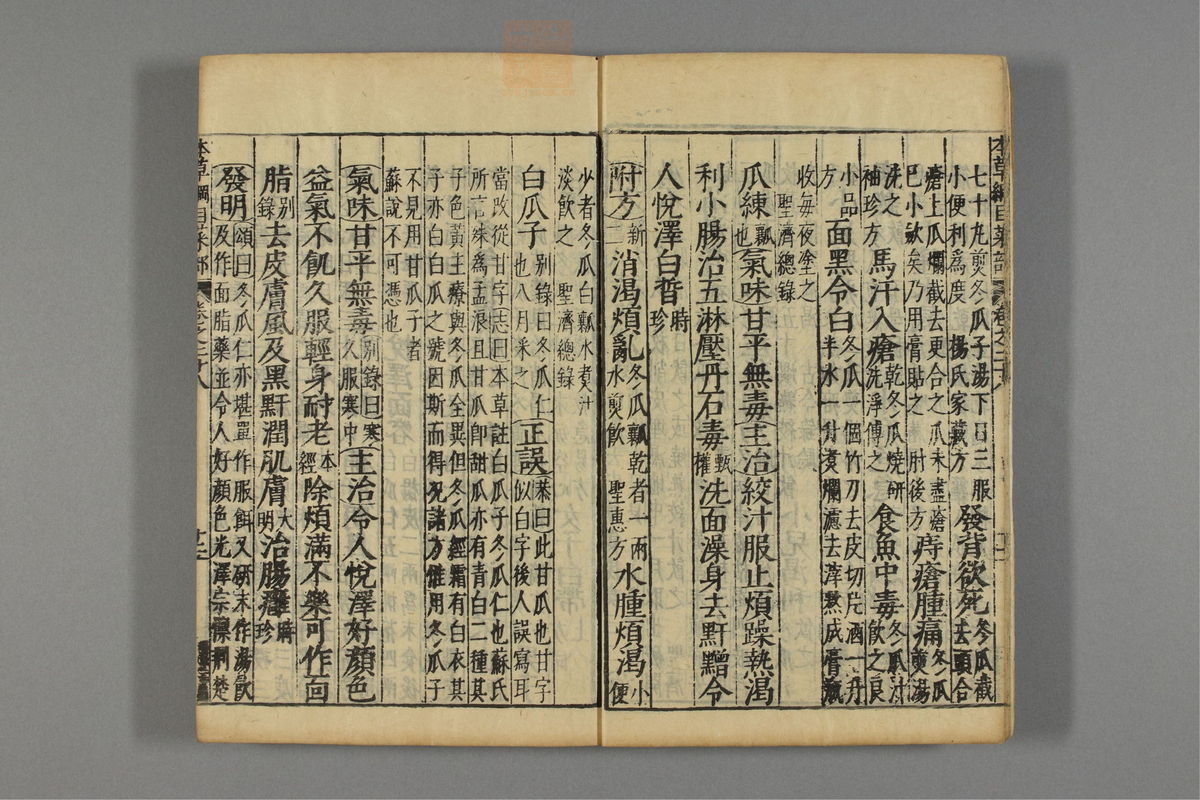 七十丸煎冬瓜子湯下日三服 發背欲死冬瓜截
小便利為度 楊氏家藏方 去頭合
瘡上瓜爛截去更合之瓜未盡瘡
巳小斂矣乃用膏貼之 肘後方 痔瘡腫痛冬瓜
煎湯
洗之
袖珍方 馬汗入瘡乾冬瓜燒研
洗淨傅之 食魚中毒冬瓜汁
飲之良
小品
方 面黑令白冬瓜一個竹刀去皮切片酒一
半水一升煮爛濾去滓熬成膏瓶
收每夜塗之
聖濟總錄
瓜練瓤
也 氣味甘平無毒主治絞汁服止煩躁熱渴
利小腸治五淋壓丹石毒甄
權 洗面澡身去䵟黵令
人悅澤白晳時
珍
附方新
二 消渴煩亂冬瓜瓤乾者一兩
水煎飲 聖惠方 水腫煩渴小
便
少者冬瓜白瓤水煮汁
淡飲之 聖濟總錄
白瓜子别錄曰冬瓜仁
也八月采之 正誤恭曰此甘瓜也甘字
似白字後人誤寫耳
當改從甘字志曰本草註白瓜子冬瓜仁也蘇氏
所言殊為孟浪且甘瓜即甜瓜亦有青白二種其
子色黃主療與冬瓜全異但冬瓜經霜有白衣其
子亦白白瓜之號因斯而得况諸方惟用冬瓜子
不見用甘瓜子者
蘇說不可憑也
氣味甘平無毒别錄曰寒
久服寒中 主治令人悅澤好顏色
益氣不飢久服輕身耐老本
經 除煩滿不樂可作面
脂别
錄 去皮膚風及黑䵟潤肌膚大
明 治腸癰時
珍
發明頌曰冬瓜仁亦堪單作服餌又研末作湯飲
及作面脂藥並令人好顏色光澤宗懍荊楚
本草綱目菜部
卷之二十八